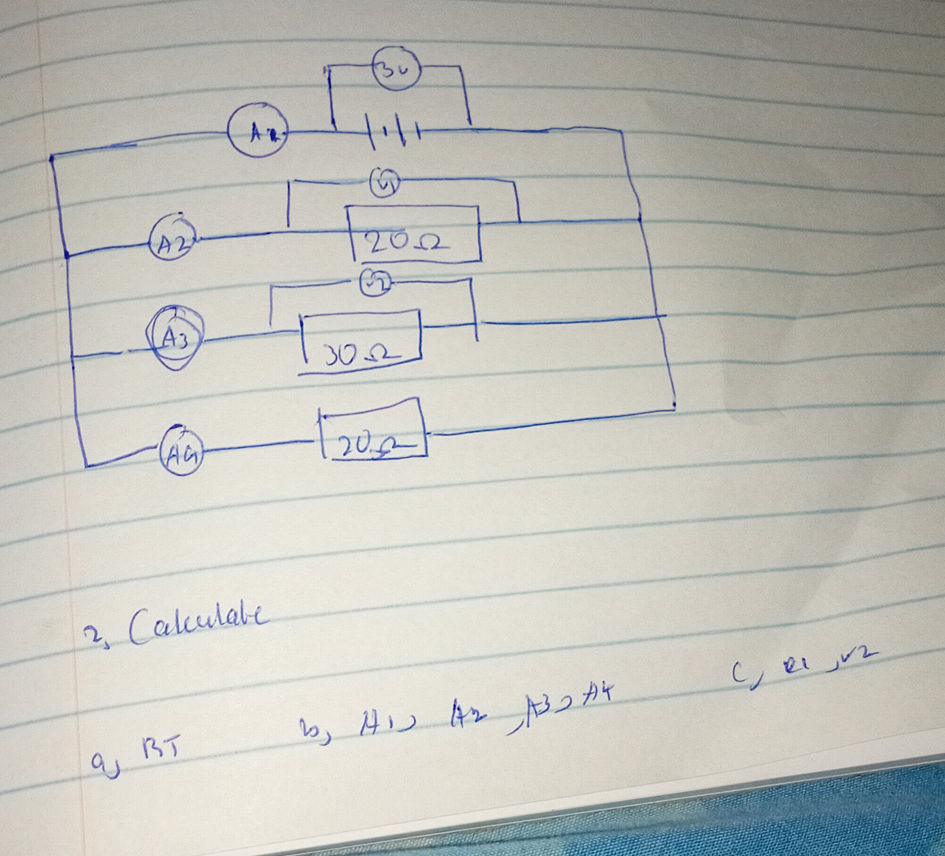 3v
A1
V1
A2
20Ω
V2
A3
30Ω
A4
20Ω
2, Calculate
a, RT b, A1, A2, A3, A4 c, V1, V2